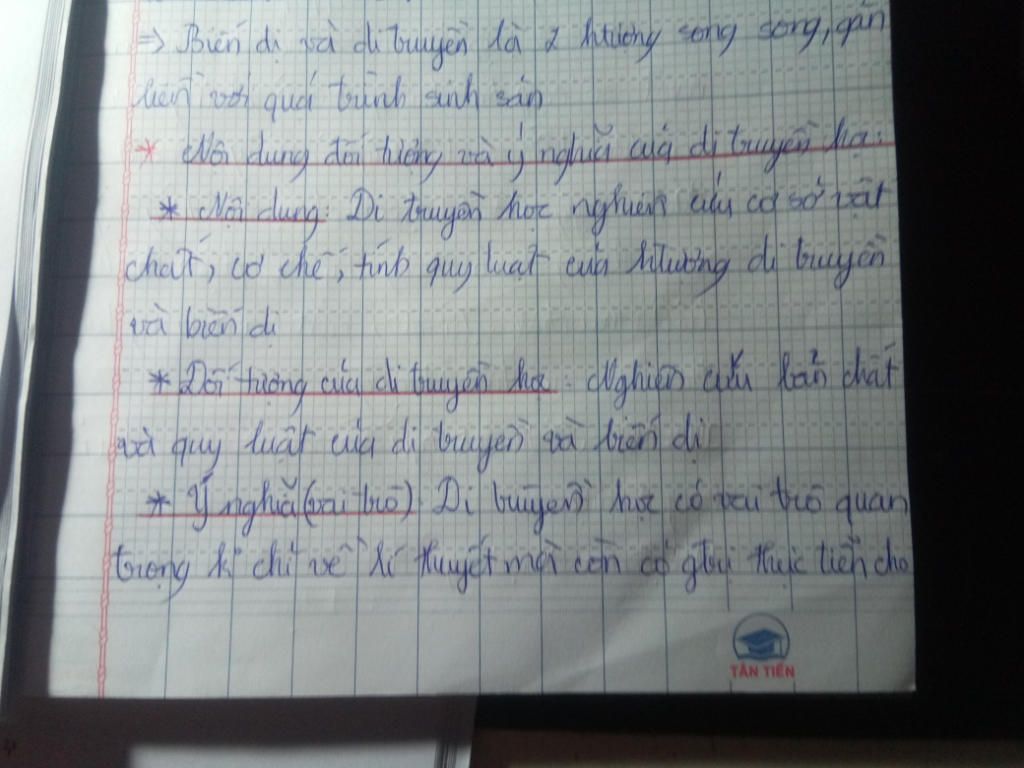 => Biến dị và di truyền là 2 htượng song song, gắn
liền với quá trình sinh sản
* Nội dung đối tượng và ý nghĩa của di truyền học:
* Nội dung: Di truyền học nghiên cứu cơ sở vật
chất, cơ chế, tính quy luật của htượng di truyền
và biến dị
* Đối tượng của di truyền học: Nghiên cứu bản chất
và quy luật của di truyền và biến dị
* Ý nghĩa (vai trò) Di truyền học có vai trò quan
trọng k chỉ về lí thuyết mà còn có gtrị thực tiễn cho
TÂN TIẾN